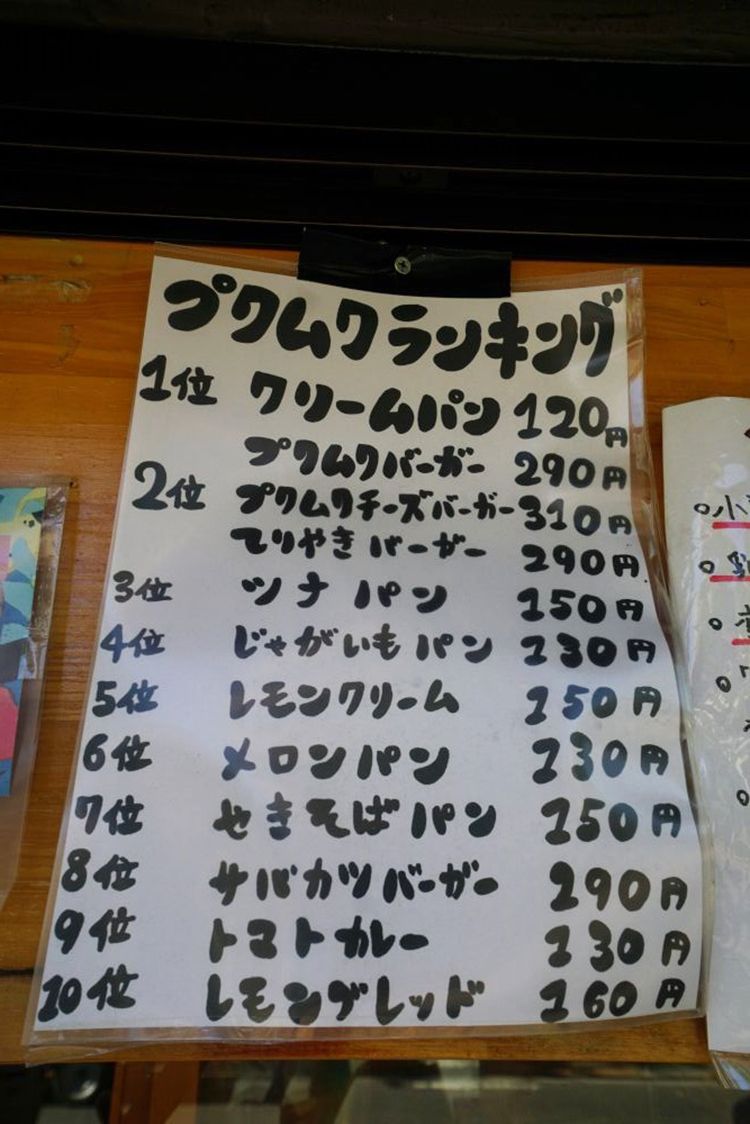 プクムクランキング
1位 クリームパン 120円
プクムクバーガー 290円
2位 プクムクチーズバーガー 310円
てりやきバーガー 290円
3位 ツナパン 150円
4位 じゃがいもパン 130円
5位 レモンクリーム 150円
6位 メロンパン 130円
7位 やきそばパン 150円
8位 サバカツバーガー 290円
9位 トマトカレー 130円
10位 レモンブレッド 160円